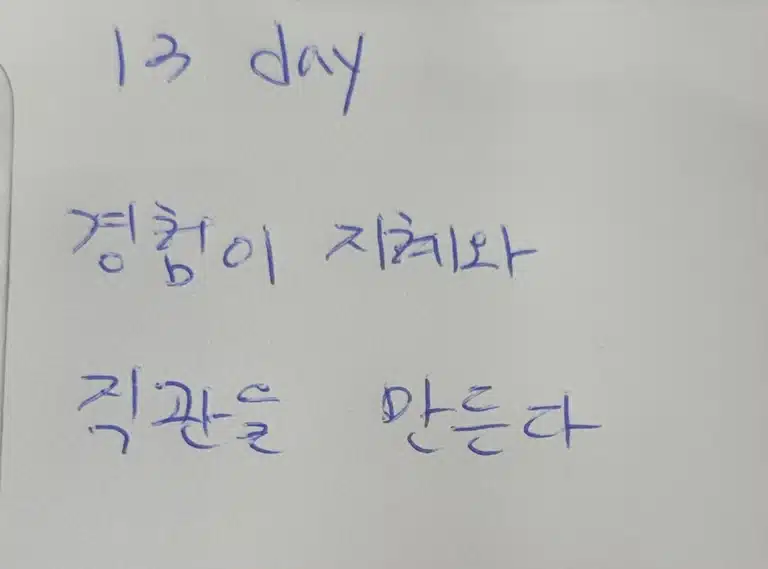 13 day
경험이 지혜와
직관을 만든다